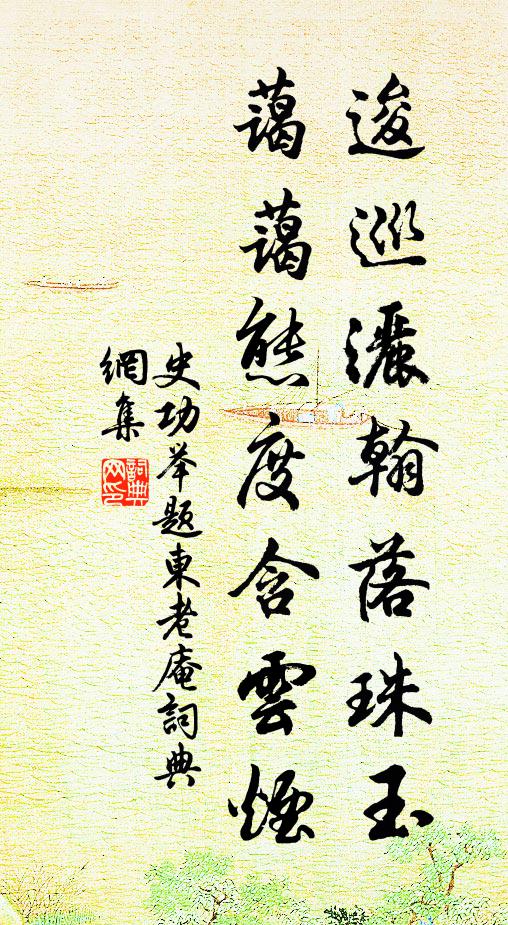 逡巡灑翰落珠玉
藹藹態度含雲煙
史功举題東老庵詞典
網集
詞典
网印